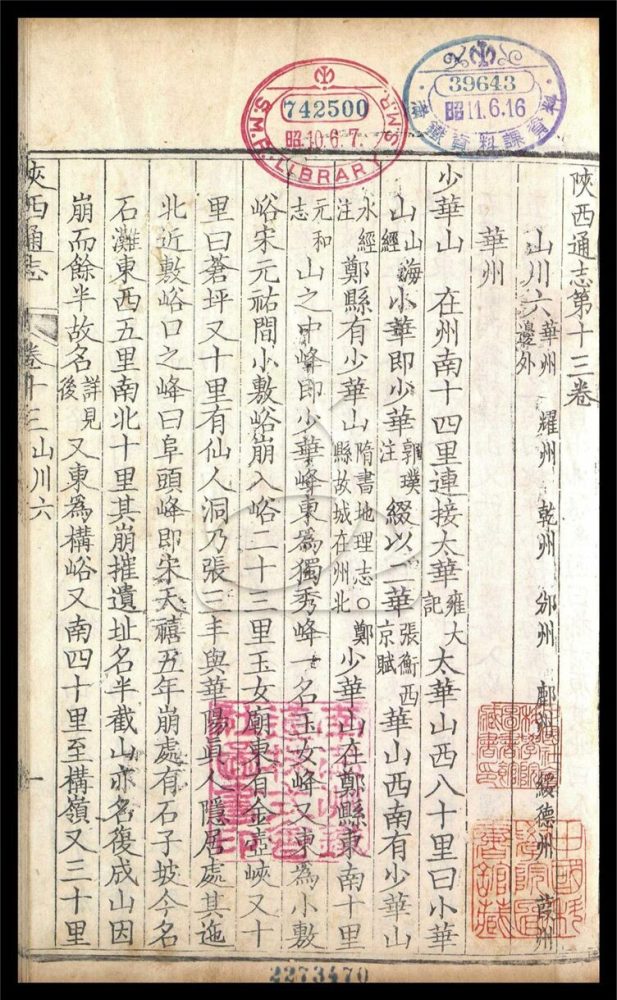 陝西通志第十三卷
山川六 華州 耀州 乾州 邠州 鄜州 綏德州 葭州
邊外
華州
少華山 在州南十四里連接太華雍大記太華山西八十里曰小華
山山海經小華即少華郭璞注綴以二華張衡西京賦華山西南有少華山
水經注鄭縣有少華山隋書地理志○鄭縣故城在州北少華山在鄭縣東南十里
元和志山之中峰即少華峰東為獨秀峰一名玉女峰又東為小敷
峪宋元祐間小敷峪崩入峪二十三里玉女廟東有金壺峽又十
里曰蒼坪又十里有仙人洞乃張三丰與華陽真人隱居處其迤
北近敷峪口之峰曰阜頭峰即宋天禧五年崩處有石子坡今名
石灘東西五里南北十里其崩摧遺址名半截山亦名復成山因
崩而餘半故名詳見後又東為構峪又南四十里至構嶺又三十里
陝西通志 卷十三 山川六 一
S.M.R. LIBRARY S.M.R.
742500
昭10.6.7
39643
昭11.6.16
資料課
2273470